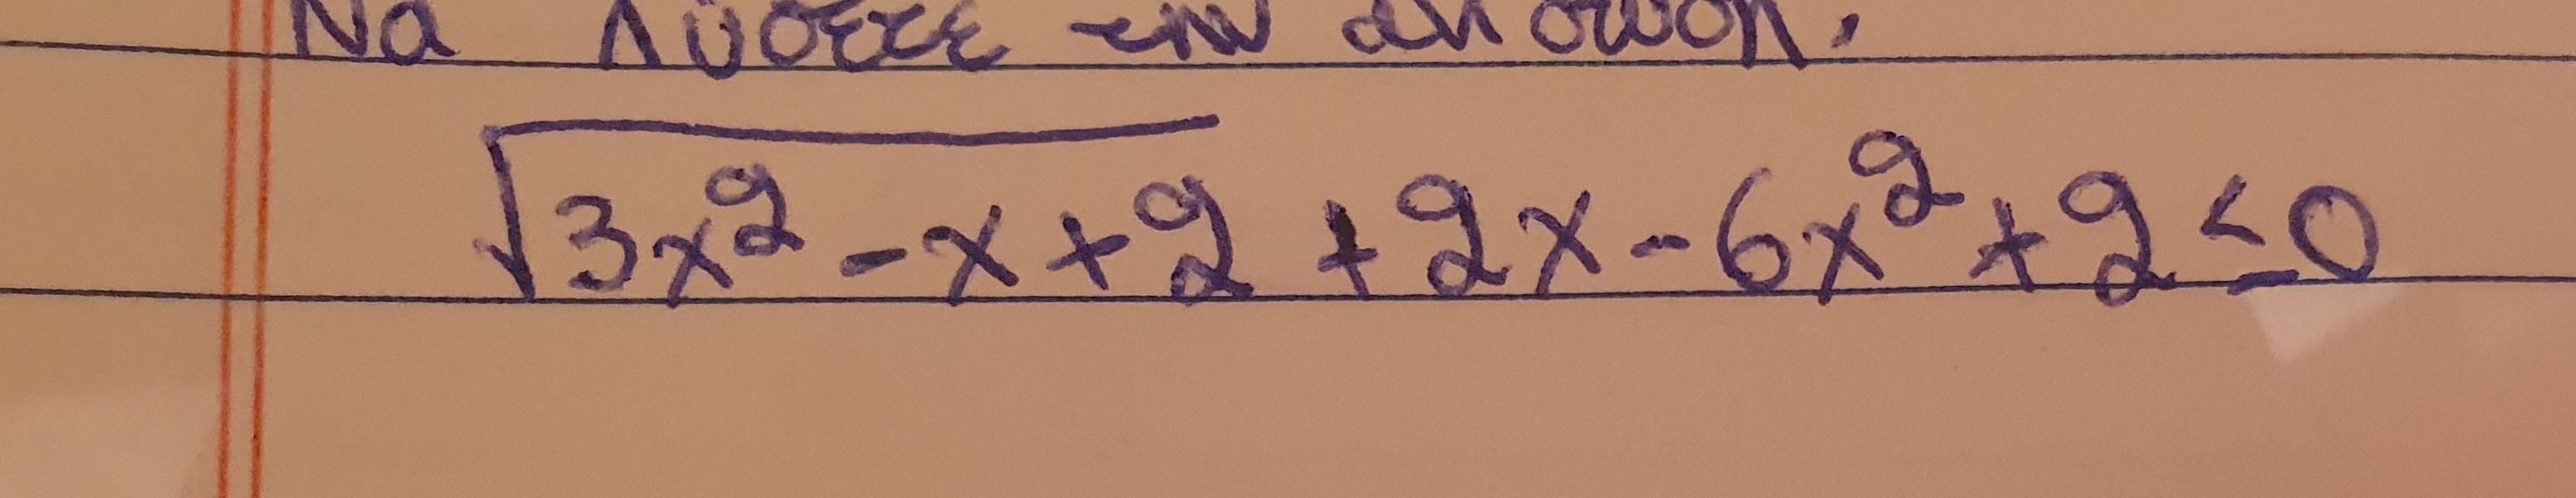 Να λύσετε την ανίσωση.
√(3x² - x + 2) + 2x - 6x² + 2 ≤ 0